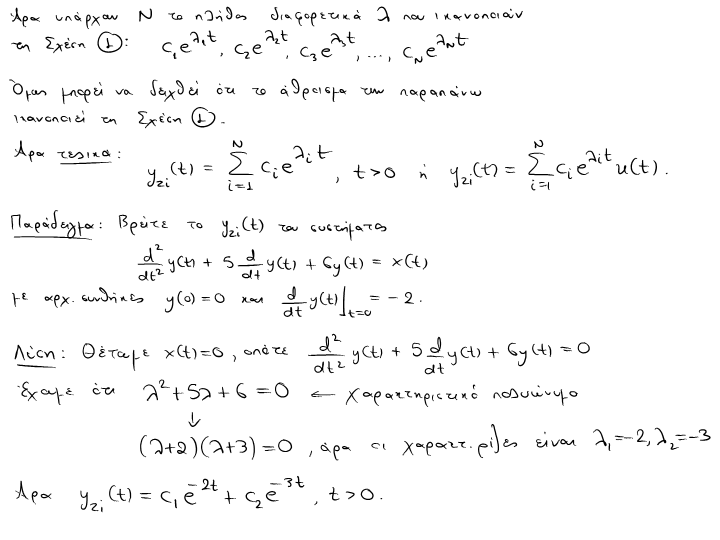 Άρα υπάρχουν N το πλήθος διαφορετικά λ που ικανοποιούν
τη Σχέση ①: c₁e^{λ₁t}, c₂e^{λ₂t}, c₃e^{λ₃t}, ..., c_N e^{λ_N t}
Όμως μπορεί να δειχθεί ότι το άθροισμα των παραπάνω
ικανοποιεί τη Σχέση ①.
Άρα τελικά: y_{zi}(t) = \sum_{i=1}^{N} c_i e^{λ_i t}, t>0 ή y_{zi}(t) = \sum_{i=1}^{N} c_i e^{λ_i t} u(t).
Παράδειγμα: Βρείτε το y_{zi}(t) του συστήματος
\frac{d^2}{dt^2} y(t) + 5\frac{d}{dt} y(t) + 6y(t) = x(t)
με αρχ. συνθήκες y(0)=0 και \frac{d}{dt} y(t)|_{t=0} = -2.
Λύση: Θέτουμε x(t)=0, οπότε \frac{d^2}{dt^2} y(t) + 5\frac{d}{dt} y(t) + 6y(t) = 0
Έχουμε ότι λ²+5λ+6=0 ← χαρακτηριστικό πολυώνυμο
↓
(λ+2)(λ+3)=0, άρα οι χαρακτ. ρίζες είναι λ₁=-2, λ₂=-3
Άρα y_{zi}(t) = c₁e^{-2t} + c₂e^{-3t}, t>0.